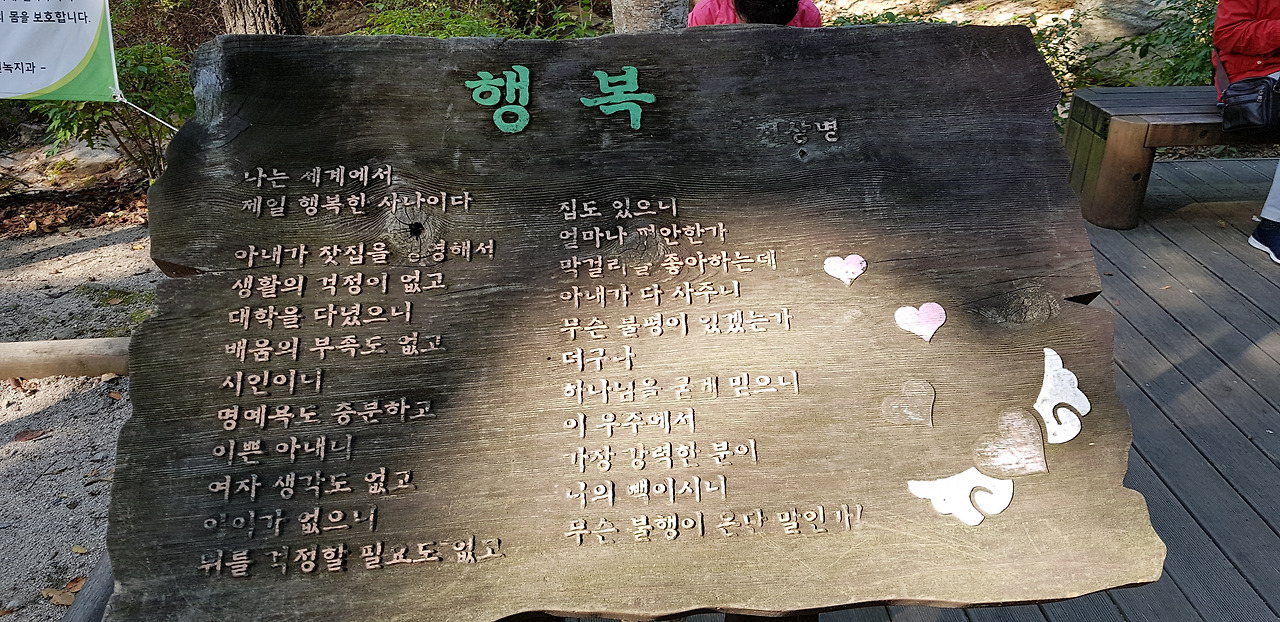 몸을 보호합니다.
녹지과 -
행복
천상병
나는 세계에서
제일 행복한 사나이다
아내가 찻집을 경영해서
생활의 걱정이 없고
대학을 다녔으니
배움의 부족도 없고
시인이니
명예욕도 충분하고
이쁜 아내니
여자 생각도 없고
아이가 없으니
뒤를 걱정할 필요도 없고
집도 있으니
얼마나 편안한가
막걸리를 좋아하는데
아내가 다 사주니
무슨 불평이 있겠는가
더구나
하나님을 굳게 믿으니
이 우주에서
가장 강력한 분이
나의 빽이시니
무슨 불행이 온단 말인가!